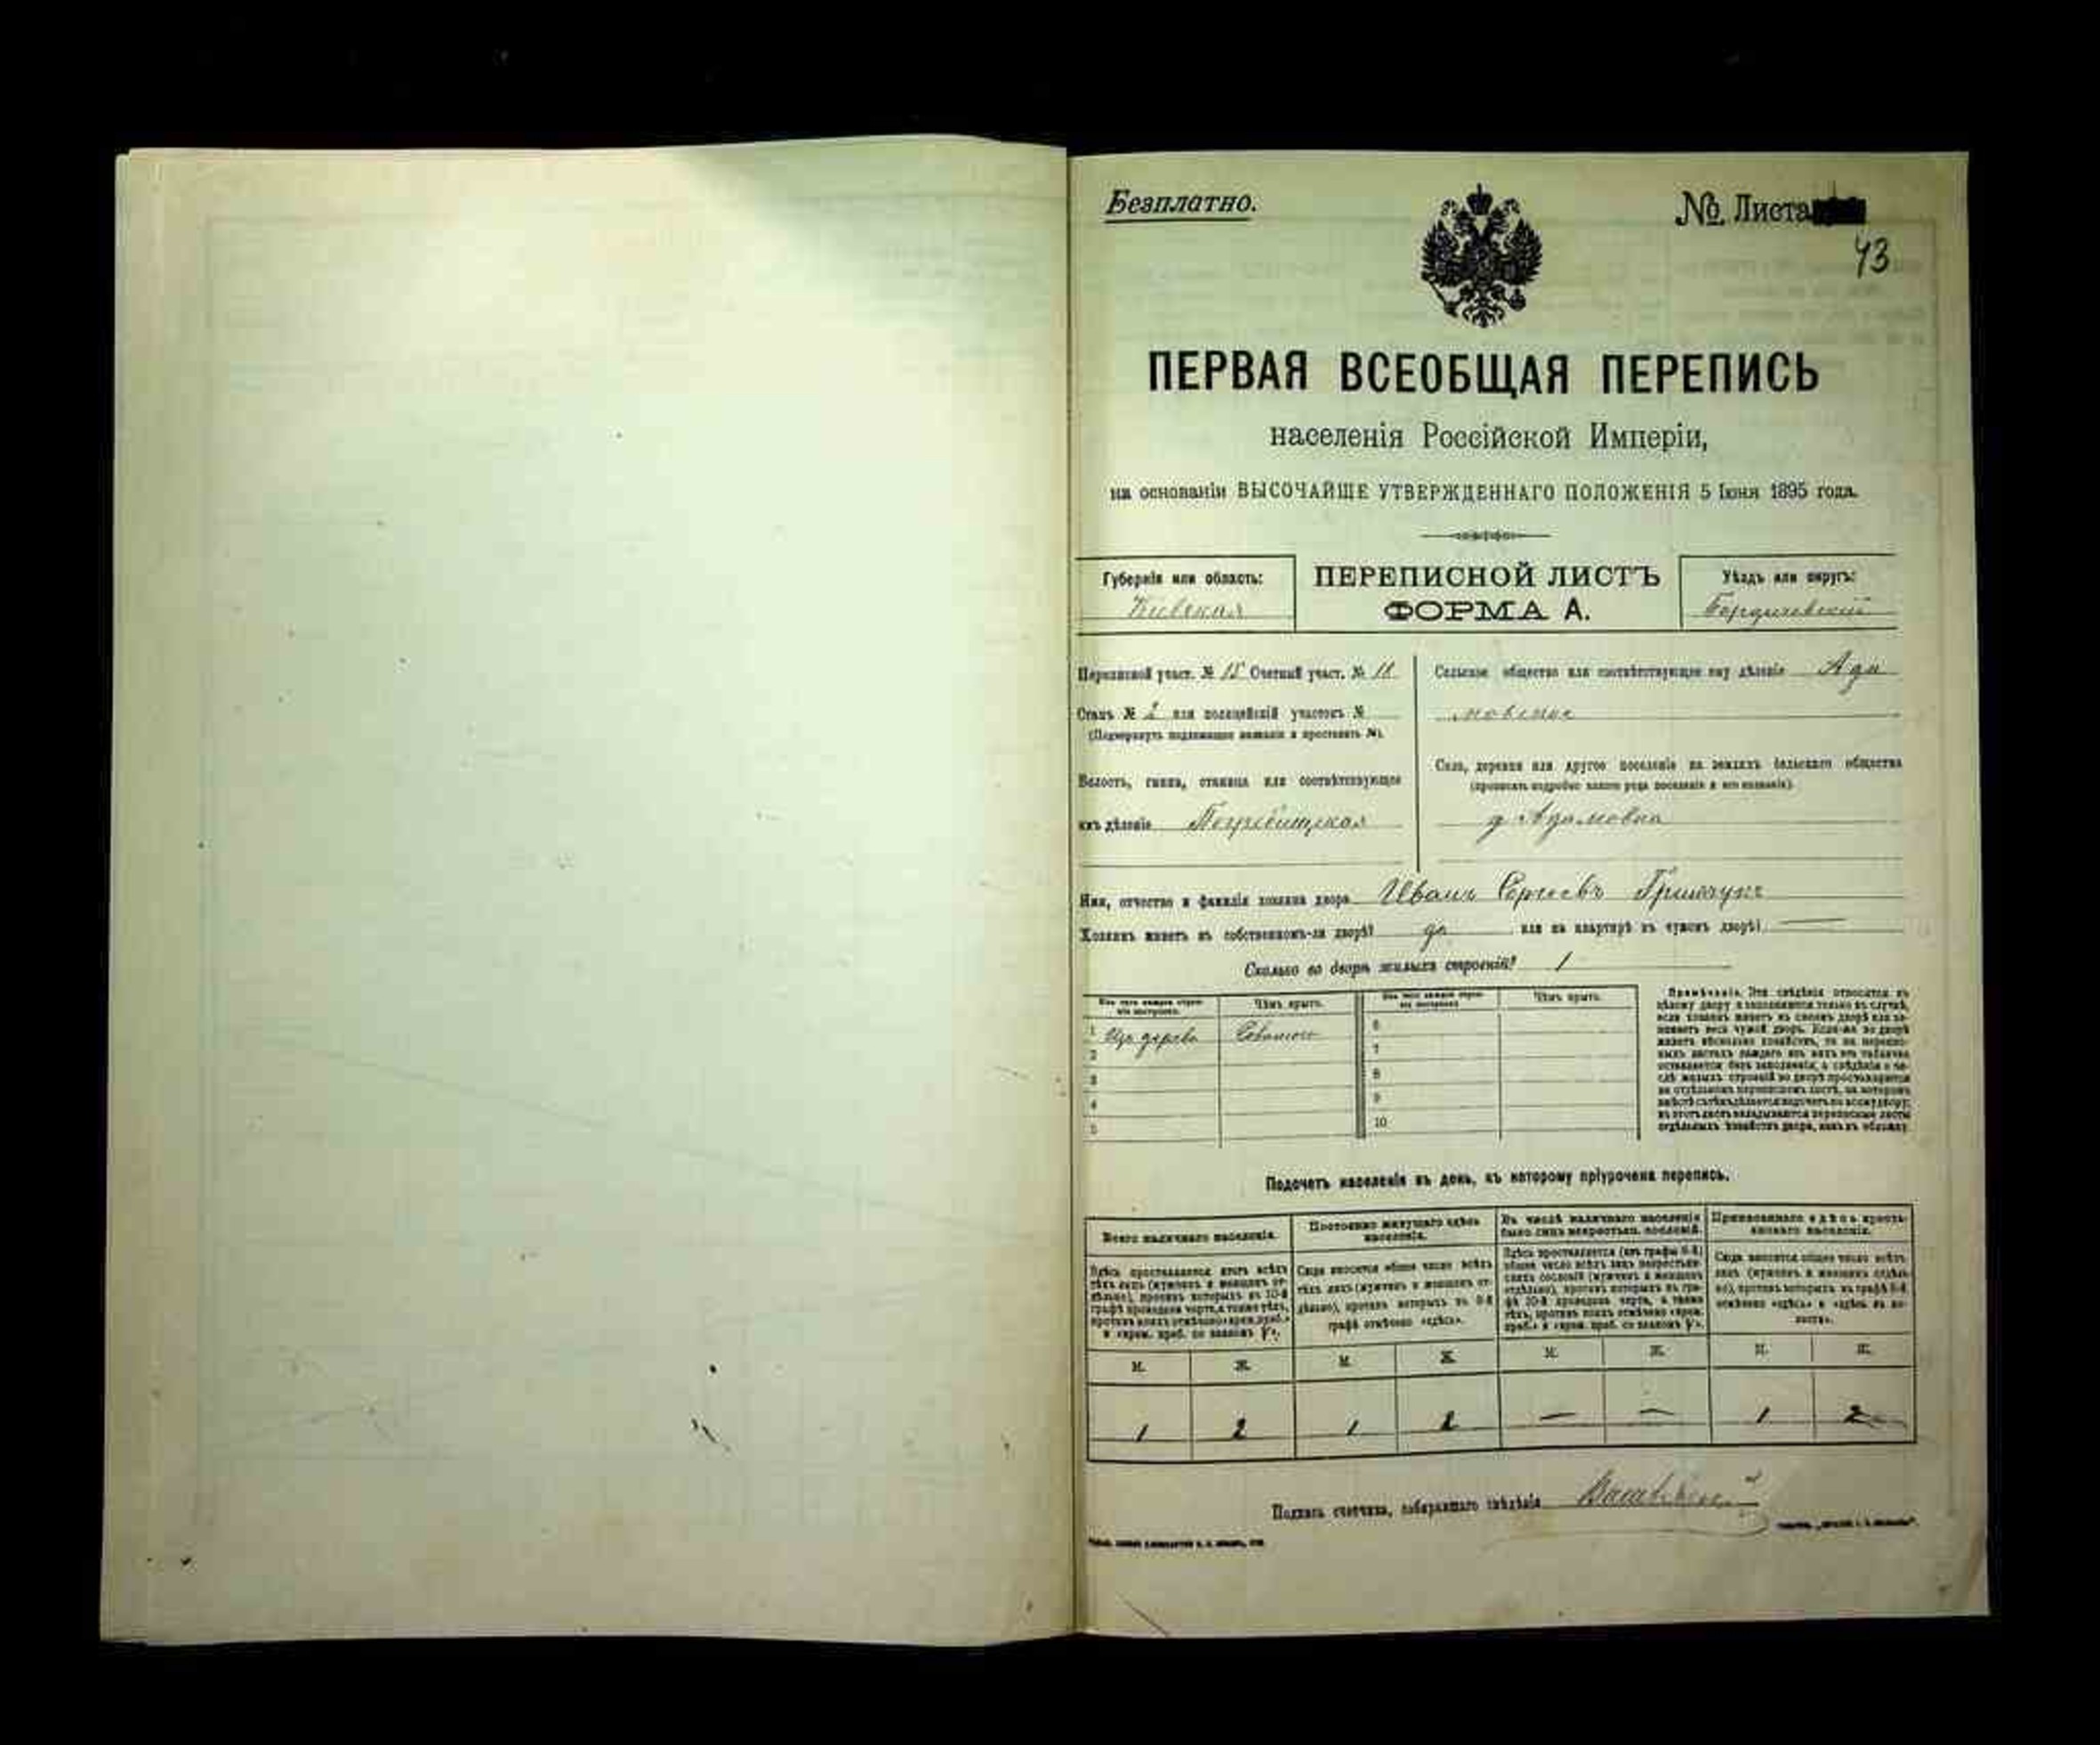 Безплатно.
№ Листа
43
ПЕРВАЯ ВСЕОБЩАЯ ПЕРЕПИСЬ
населенія Россійской Имперіи,
на основаніи ВЫСОЧАЙШЕ УТВЕРЖДЕННАГО ПОЛОЖЕНІЯ 5 Іюня 1895 года.
Губернія или область:
Кіевская
ПЕРЕПИСНОЙ ЛИСТЪ
ФОРМА А.
Уѣздъ или округъ:
Бердичевскій
Переписной участ. № 15 Счетный участ. № 18
Станъ № 2 или полицейскій участокъ №
(Подчеркнуть подлежащее названіе и проставить №).
Волость, гмина, станица или соотвѣтствующее
имъ дѣленіе Погребищская
Сельское общество или соотвѣтствующее ему дѣленіе Ада
мовское
Село, деревня или другое поселеніе на земляхъ сельскаго общества
(прописать подробно какого рода поселеніе и его названіе).
д. Адамовка
Имя, отчество и фамилія хозяина двора Иванъ Сергѣевъ Гринчукъ
Хозяинъ живетъ въ собственномъ-ли дворѣ? да или на квартирѣ въ чужомъ дворѣ? —
Сколько во дворѣ жилыхъ строеній? 1
Изъ чего каждое строеніе построено.
Чѣмъ крыто.
Изъ чего каждое строеніе построено.
Чѣмъ крыто.
1 Изъ дерева Соломою 6
2 7
3 8
4 9
5 10
Примѣчаніе. Эти свѣдѣнія относятся къ
цѣлому двору и заполняются только въ случаѣ,
если хозяинъ живетъ въ своемъ дворѣ или за-
нимаетъ весь чужой дворъ. Если-же во дворѣ
живетъ нѣсколько хозяйствъ, то на перепис-
ныхъ листахъ каждаго изъ нихъ эта табличка
оставляется безъ заполненія, а свѣдѣнія о чи-
слѣ жилыхъ строеній во дворѣ проставляются
на отдѣльномъ переписномъ листѣ, на которомъ
вмѣстѣ съ тѣмъ дѣлается подсчетъ по всему двору;
въ этотъ листъ вкладываются переписные листы
отдѣльныхъ хозяйствъ двора, какъ въ обложку.
Подсчетъ населенія въ день, къ которому пріурочена перепись.
Всего наличнаго населенія.
Здѣсь проставляется итогъ всѣхъ
тѣхъ лицъ (мужчинъ и женщинъ от-
дѣльно), противъ которыхъ въ 10-й
графѣ проведена черта, а также тѣхъ,
противъ коихъ отмѣчено «врем. преб.»
Постоянно живущаго здѣсь
населенія.
Сюда вносится общее число всѣхъ
тѣхъ лицъ (мужчинъ и женщинъ от-
дѣльно), противъ которыхъ въ 9-й
графѣ отмѣчено «здѣсь».
Въ числѣ наличнаго населенія
было лицъ некрестьян. сословій.
Здѣсь проставляется (изъ графы 6-й)
общее число всѣхъ лицъ некрестьян-
скихъ сословій (мужчинъ и женщинъ
отдѣльно), противъ которыхъ въ гра-
фѣ 10-й проведена черта, а также
тѣхъ, противъ коихъ отмѣчено «врем.
Приписаннаго здѣсь кресть-
янскаго населенія.
Сюда вносится общее число всѣхъ
лицъ (мужчинъ и женщинъ отдѣль-
но), противъ которыхъ въ графѣ 8-й
отмѣчено «здѣсь» и «здѣсь въ во-
лости».
М. Ж. М. Ж. М. Ж. М. Ж.
1 2 1 2 — — 1 2
Подпись счетчика, собиравшаго свѣдѣнія